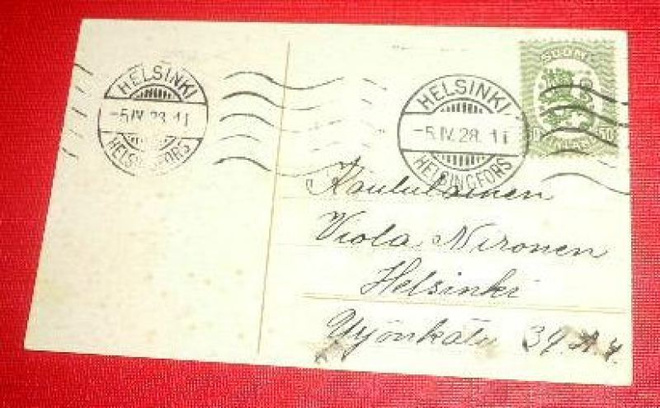 HELSINKI
-5.IV.28.11
HELSINGFORS
HELSINKI
-5.IV.28.11
HELSINGFORS
SUOMI
50
FINLAND
Koululainen
Viola Nironen
Helsinki
Yrjönkatu 39. A. 4.